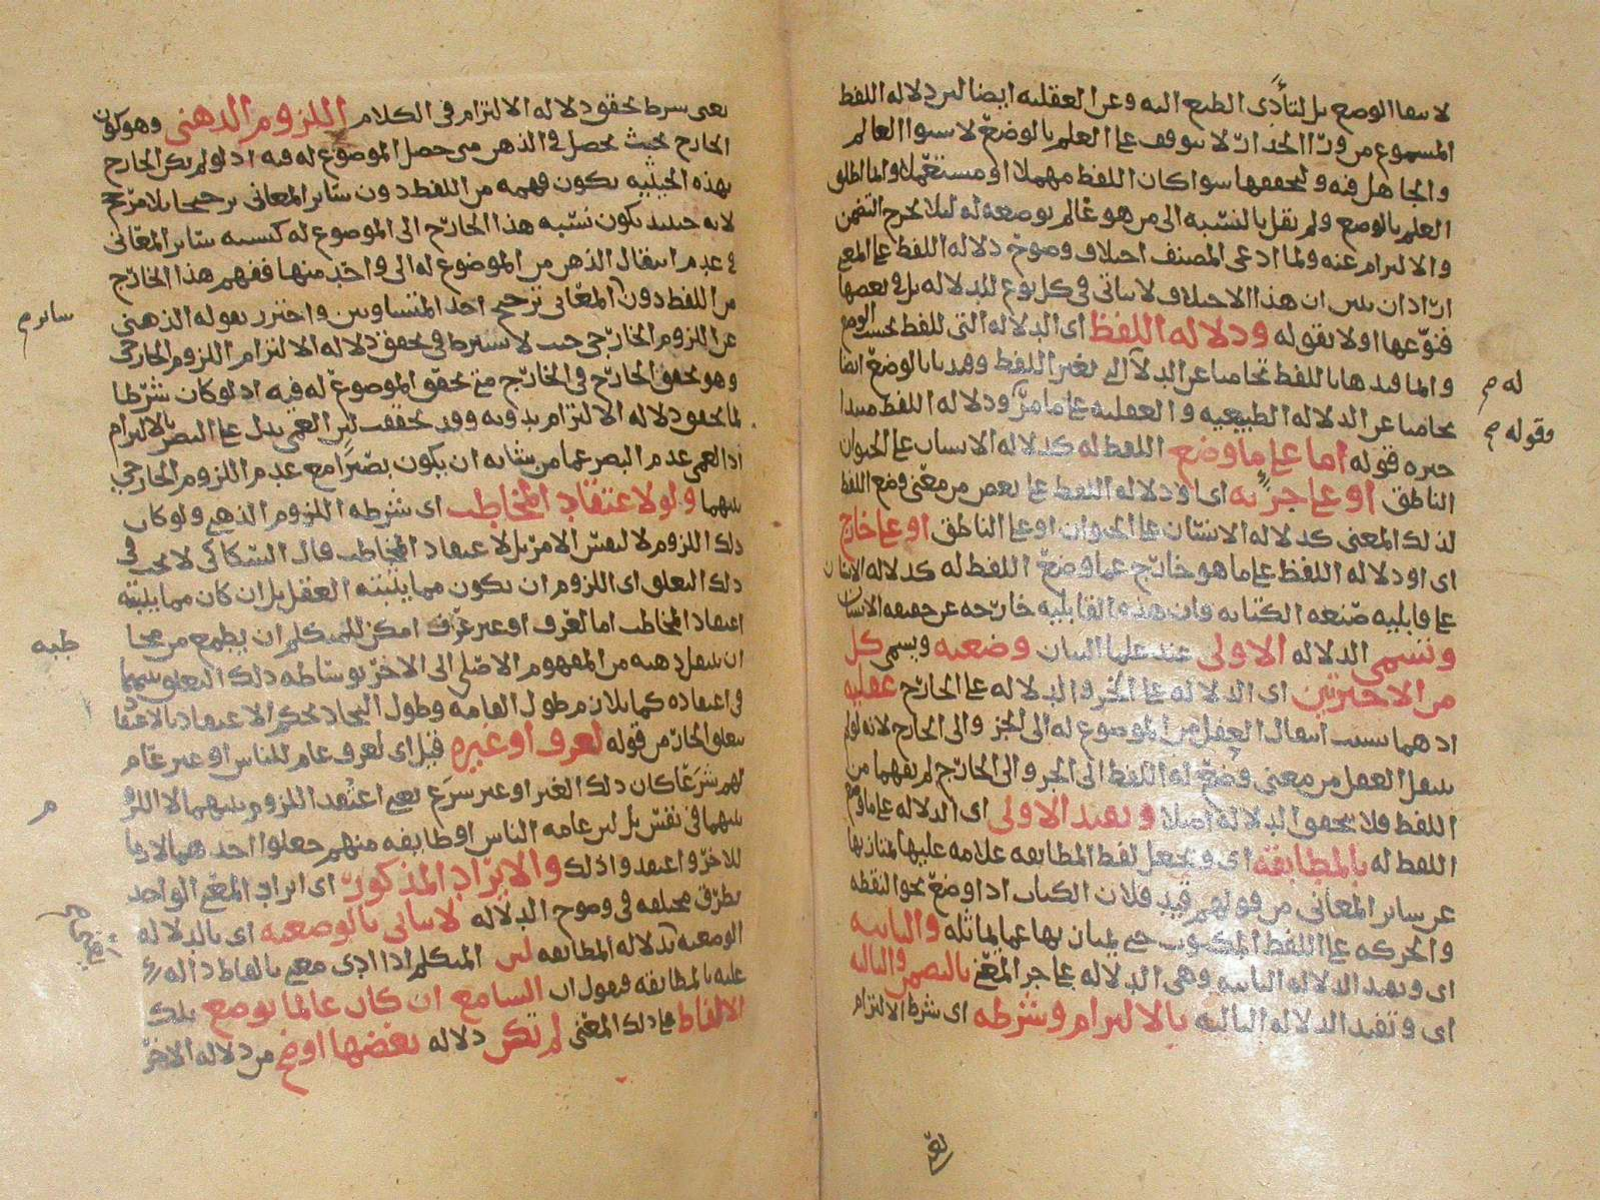 لا سفا الوضع بل لتأدى الطبع اليه وعن العقليه ايضا لان دلاله اللفظ
المسموع من ورا الجدار لا يتوقف على العلم بالوضع لاستوا العالم
والجاهل فيه ولتحققها سوا كان اللفظ مهملا او مستعملا وانما اطلق
العلم بالوضع ولم يقل بالنسبه الى من هو عالم بوضعه له ليلا يخرج التضمن
والالتزام عنه ولما ادعى المصنف اختلاف وضوح دلاله اللفظ على المعنى
اراد ان يبين ان هذا الاختلاف لا يتاتى فى كل نوع للدلاله بل فى بعضها
فنوّعها اولا بقوله ودلاله اللفظ اى الدلاله التى للفظ بحسب الوضع
وانما قيدها باللفظ تحاميا عن الدلاله التى لغير اللفظ وقيدنا بالوضع ايضا
تحاميا عن الدلاله الطبيعيه والعقليه على ما مرّ ودلاله اللفظ مبتدا
خبره قوله اما على ما وضع اللفظ له كدلاله الانسان على الحيوان
الناطق او على جزئه اى او دلاله اللفظ على بعض من معنى وضع اللفظ
لذلك المعنى كدلاله الانسان على الحيوان او على الناطق او على خارج
اى او دلاله اللفظ على ما هو خارج عما وضع اللفظ له كدلاله الانسان
على قابليه صنعه الكتابه فان هذه القابليه خارجه عن حقيقه الانسان
وتسمى الدلاله الاولى عند علما البيان وضعيه ويسمى كل
من الاخيرتين اى الدلاله على الجزء والدلاله على الخارج عقليه
اذ هما بسبب انتقال العقل من الموضوع له الى الجزء والى الخارج لانه لو لم
ينتقل العقل من معنى وضع له اللفظ الى الجزء والى الخارج لم يفهما من
اللفظ فلا يتحقق الدلاله اصلا وتقيد الاولى اى الدلاله على ما وضع
اللفظ له بالمطابقه اى وتجعل لفظ المطابقه علامه عليها لتمتاز بها
عن ساير المعانى من قولهم قيد فلان الكتاب اذا وضع نحو النقطه
والحركه على اللفظ المكتوب حتى يمتاز بها عما يماثله والثانيه
اى وتقيد الدلاله الثانيه وهى الدلاله على جزء المعنى بالتضمن والثالثه
اى وتقيد الدلاله الثالثه بالالتزام وشرطه اى شرط الالتزام
له م
وقوله م
يعنى شرط تحقق دلاله الالتزام فى الكلام اللزوم الذهنى وهو كون
الخارج بحيث يحصل فى الذهن متى حصل الموضوع له فيه اذ لو لم يكن الخارج
بهذه الحيثيه يكون فهمه من اللفظ دون ساير المعانى ترجيحا بلا مرجح
لانه حينئذ يكون نسبه هذا الخارج الى الموضوع له كنسبه ساير المعانى
فى عدم انتقال الذهن من الموضوع له الى واحد منها ففهم هذا الخارج
من اللفظ دون المعانى ترجيح احد المتساويين واحترز بقوله الذهنى
عن اللزوم الخارجى حيث لا يشترط فى تحقق دلاله الالتزام اللزوم الخارجى
وهو تحقق الخارج فى الخارج متى تحقق الموضوع له فيه اذ لو كان شرطا
لما تحقق دلاله الالتزام بدونه وقد تحققت لان العمى يدل على البصر بالالتزام
اذ العمى عدم البصر عما من شانه ان يكون بصيرا مع عدم اللزوم الخارجى
بينهما ولو لاعتقاد المخاطب اى شرطه اللزوم الذهنى ولو كان
ذلك اللزوم لا لنفس الامر بل لاعتقاد المخاطب قال السكاكى لا يجب فى
ذلك التعلق اى اللزوم ان يكون مما يثبته العقل بل ان كان مما يثبته
اعتقاد المخاطب اما لعرف او غير عرف امكن للمتكلم ان يطمع من مخا
ان ينتقل ذهنه من المفهوم الاصلى الى الاخر بوساطه ذلك التعلق بينهما
فى اعتقاده كما بلازم طول القامه وطول النجاد بحكم الاعتقاد بالاعتقا
يتعلق الجار من قوله لعرف او غيره قيل اى لعرف عام للناس او غير عام
لهم شرعا كان ذلك الغير او غير شرع يعنى اعتقد اللزوم بينهما لا اللزو
بينهما فى نفس بل لان عامه الناس او طايفه منهم جعلوا احدهما لازما
للاخر واعتقدوا ذلك والايراد المذكور اى ايراد المعنى الواحد
بطرق مختلفه فى وضوح الدلاله لا يتاتى بالوضعيه اى بالدلاله
الوضعيه كدلاله المطابقه لان المتكلم اذا ادى معنى بالفاظ داله
عليه بالمطابقه فيقول ان السامع ان كان عالما بوضع تلك
الالفاظ على ذلك المعنى لم تكن دلاله بعضها اوضح من دلاله الاخر
ساير م
طبه
م